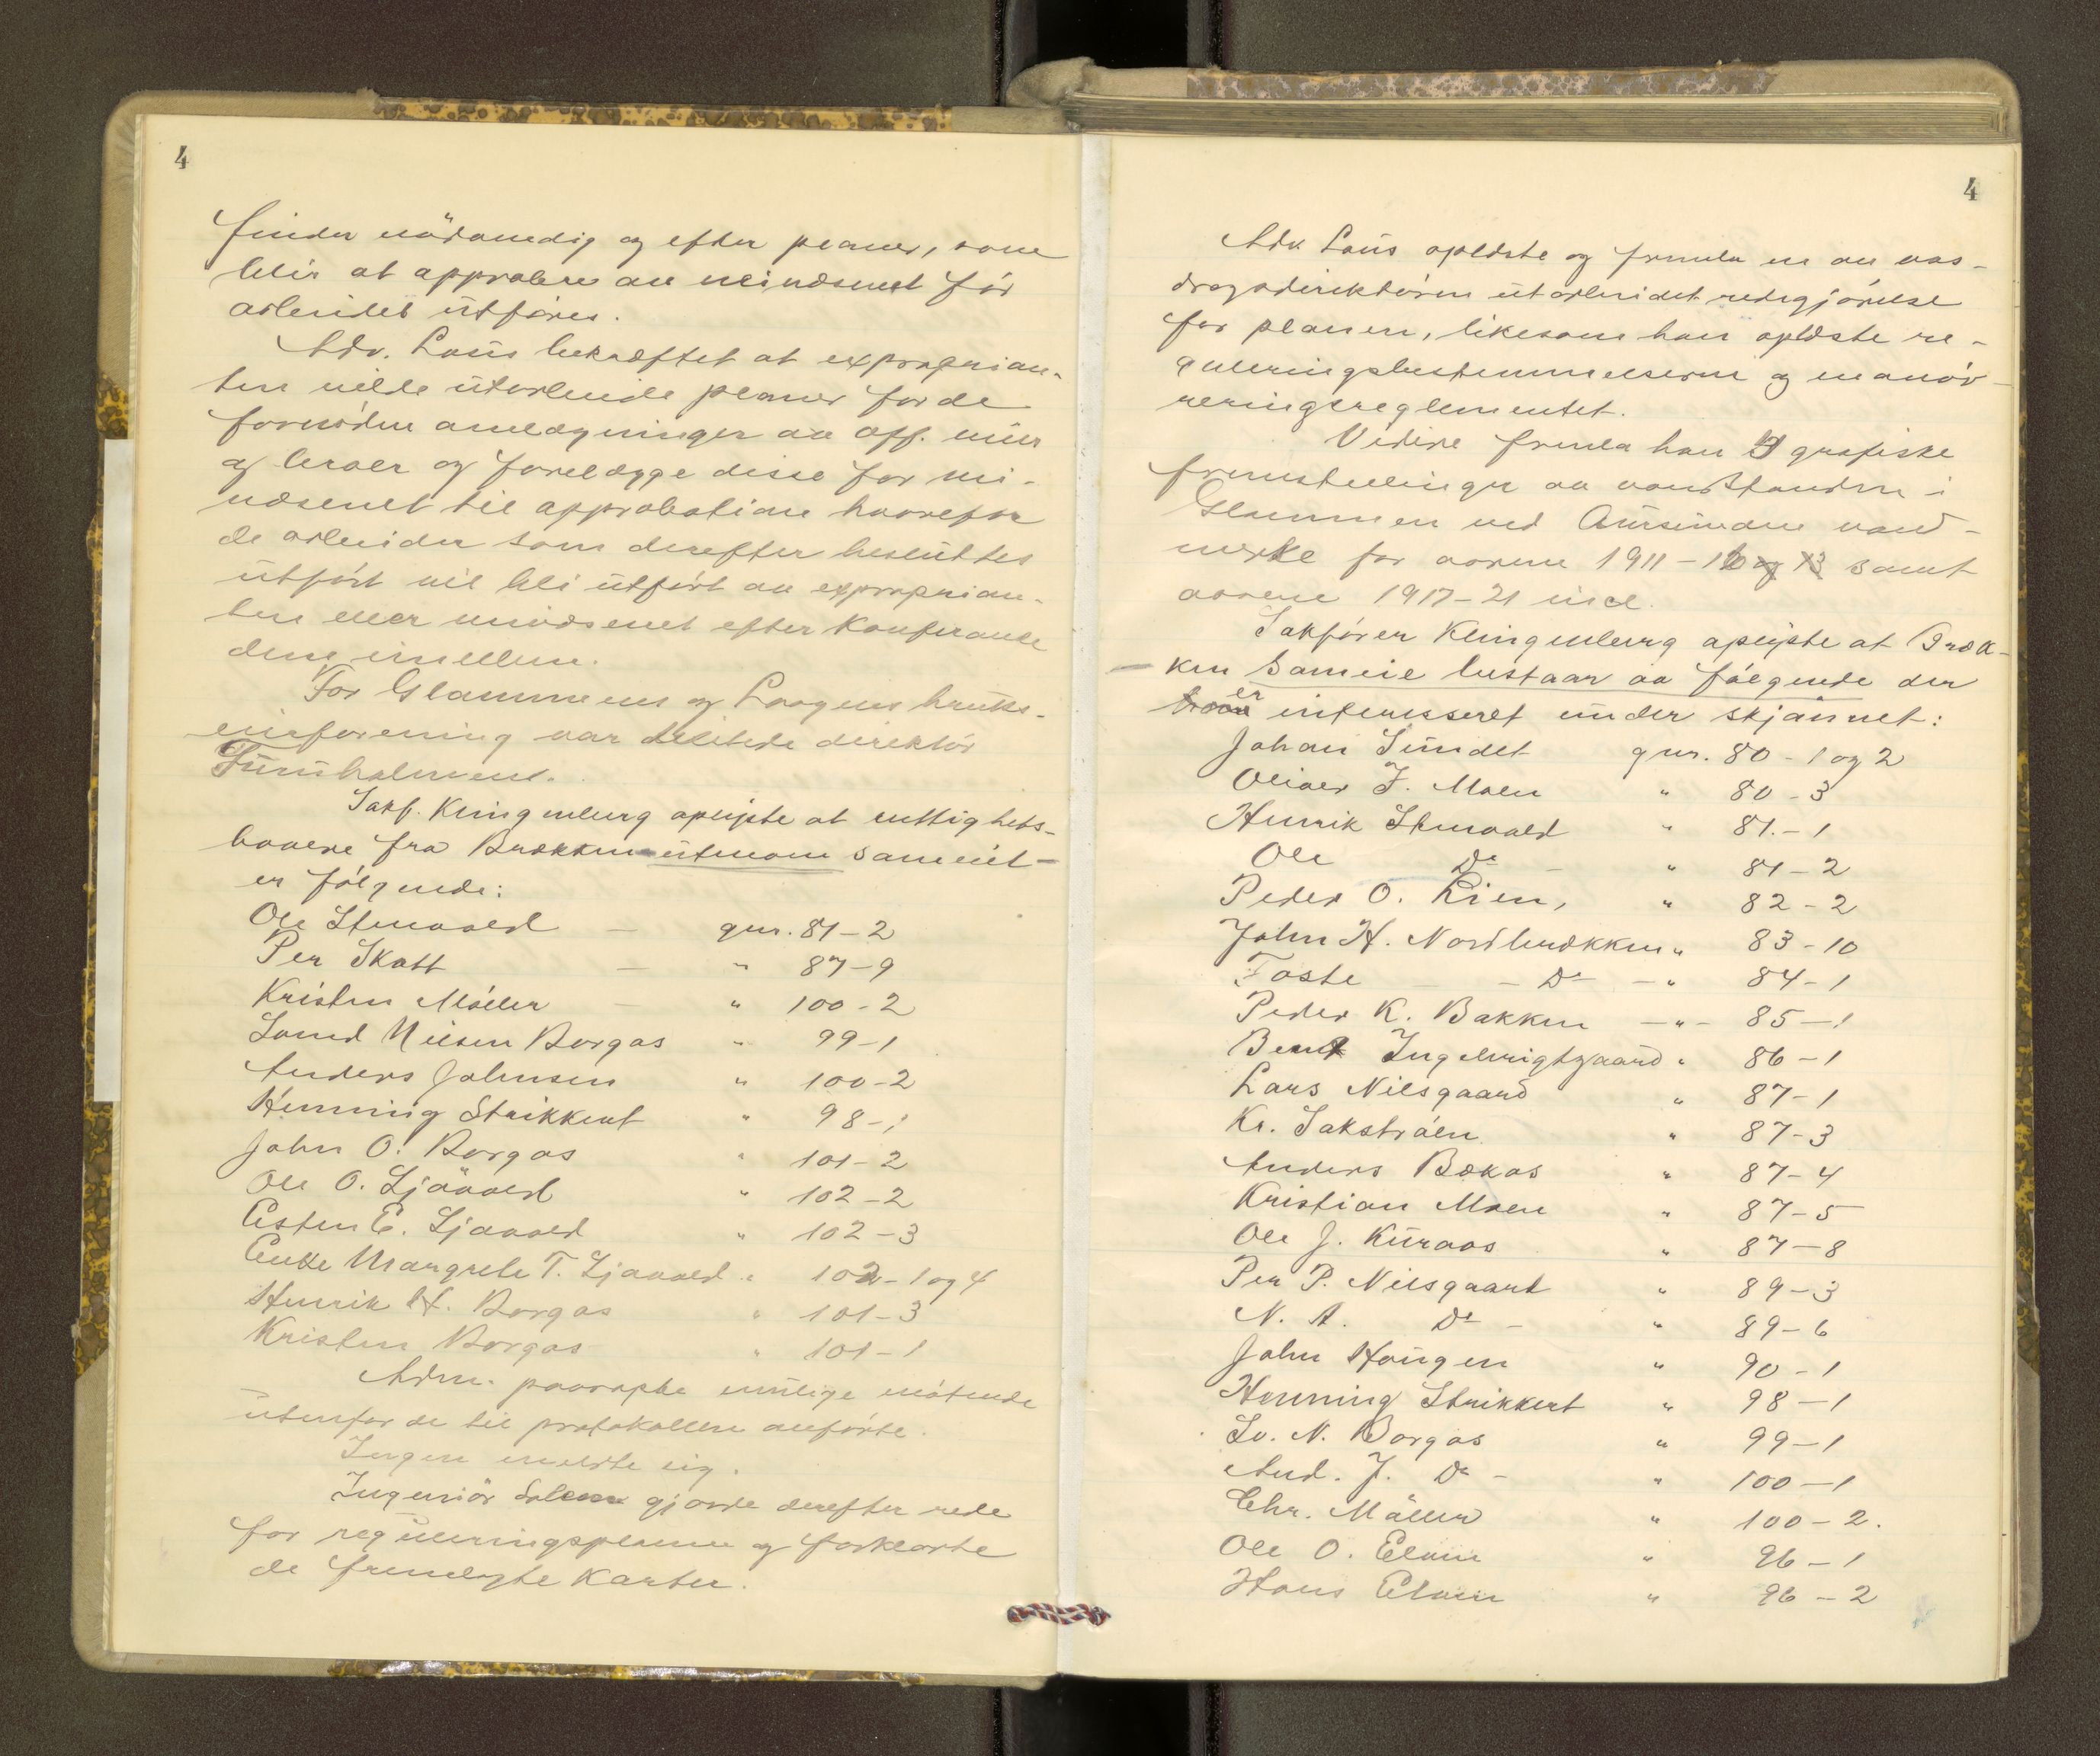 4
finder nödvendig og efter planer, som
blir at approbere av mindsmet før
arbeidet utføres.
Adv. Louis bekræftet at exproprian-
ten vilde utarbeide planer for de
fornødne omlægninger av off. veier
og broer og forelægge disse for mi-
nisteriet til approbation hvorefter
de arbeider som derefter besluttes
utført vil bli utført av exproprian-
ten eller efter konferanse
dem imellem.
For Glommens og Laagens bruks-
eierforening var tilstede direktør
Furuholmen.
Sakf. Klingenberg oplyste at rettighets-
havere fra Brekken utenom sameiet
er følgende:
Ole Stenvold — gnr. 81-2
Per Skott — " 87-9
Kristen Möller — " 100-2
Svend Nilsen Borgos " 99-1
Anders Johnsen " 100-2
Henning Strikkert " 98-1
John O. Borgos " 101-2
Ole O. Ljøvold " 102-2
Esten E. Ljøvold " 102-3
Enke Margrete T. Ljøvold " 102-1 og 4
Henrik H. Borgos " 101-3
Kristen Borgos " 101-1
Adm. paaropte mulige møtende
utenfor de til protokollen anførte.
Ingen meldte sig.
Ingeniör gjorde derefter rede
for reguleringsplanen og forklarte
de fremlagte karter.
4
Adv. Louis oplæste og fremla en av vas-
dragsdirektøren utarbeidet redegjørelse
for planen, likesom han oplæste re-
guleringsbestemmelserne og manöv-
reringsreglementet.
Videre fremla han grafiske
fremstillinger av vandstanden i
Glommen ved Aursunden vand-
merke for aarene 1911-16 samt
aarene 1917-21 incl.
Sakfører Klingenberg oplyste at Bræk-
ken Sameie bestaar av følgende der
er interesseret under skjønnet:
Johan Sundet gnr. 80-1 og 2
Oliver J. Moen " 80-3
Henrik Stenvold " 81-1
Ole Do - " 81-2
Peder O. Lien, " 82-2
John H. Nordbrækken " 83-10
Toste - Do - " 84-1
Peder K. Bakken - " - 85-1
Bernt Ingebrigtsgaard " 86-1
Lars Nilsgaard " 87-1
Kr. Sakstrøen " 87-3
Anders Bækos " 87-4
Kristian Moen " 87-5
Ole J. Kuraas " 87-8
Per P. Nilsgaard " 89-3
N. A. Do - " 89-6
John Haugen " 90-1
Henning Strikkert " 98-1
Sv. N. Borgos " 99-1
And. J. Do - " 100-1
Chr. Möller " 100-2.
Ole O. Elven " 96-1
Hans Elven " 96-2